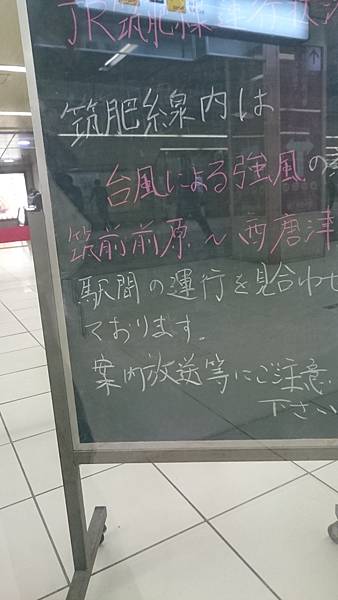 JR筑肥線
筑肥線内は
台風による強風の
筑前前原～西唐津
駅間の運行を見合わせ
ております。
案内放送等にご注意
下さい